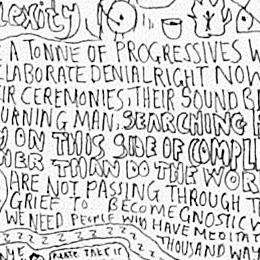 plexity
A TONNE OF PROGRESSIVES W
ELABORATE DENIAL RIGHT NOW
IR CEREMONIES, THEIR SOUND B
URNING MAN. SEARCHING F
ON THIS SIDE OF COMPL
HER THAN DO THE WOR
ARE NOT PASSING THROUGH T
GRIEF TO BECOME GNOSTIC W
WE NEED PEOPLE WHO HAVE MEDITAT
THOUSAND WAY
Z Z Z Z Z Z Z
TAKE IT